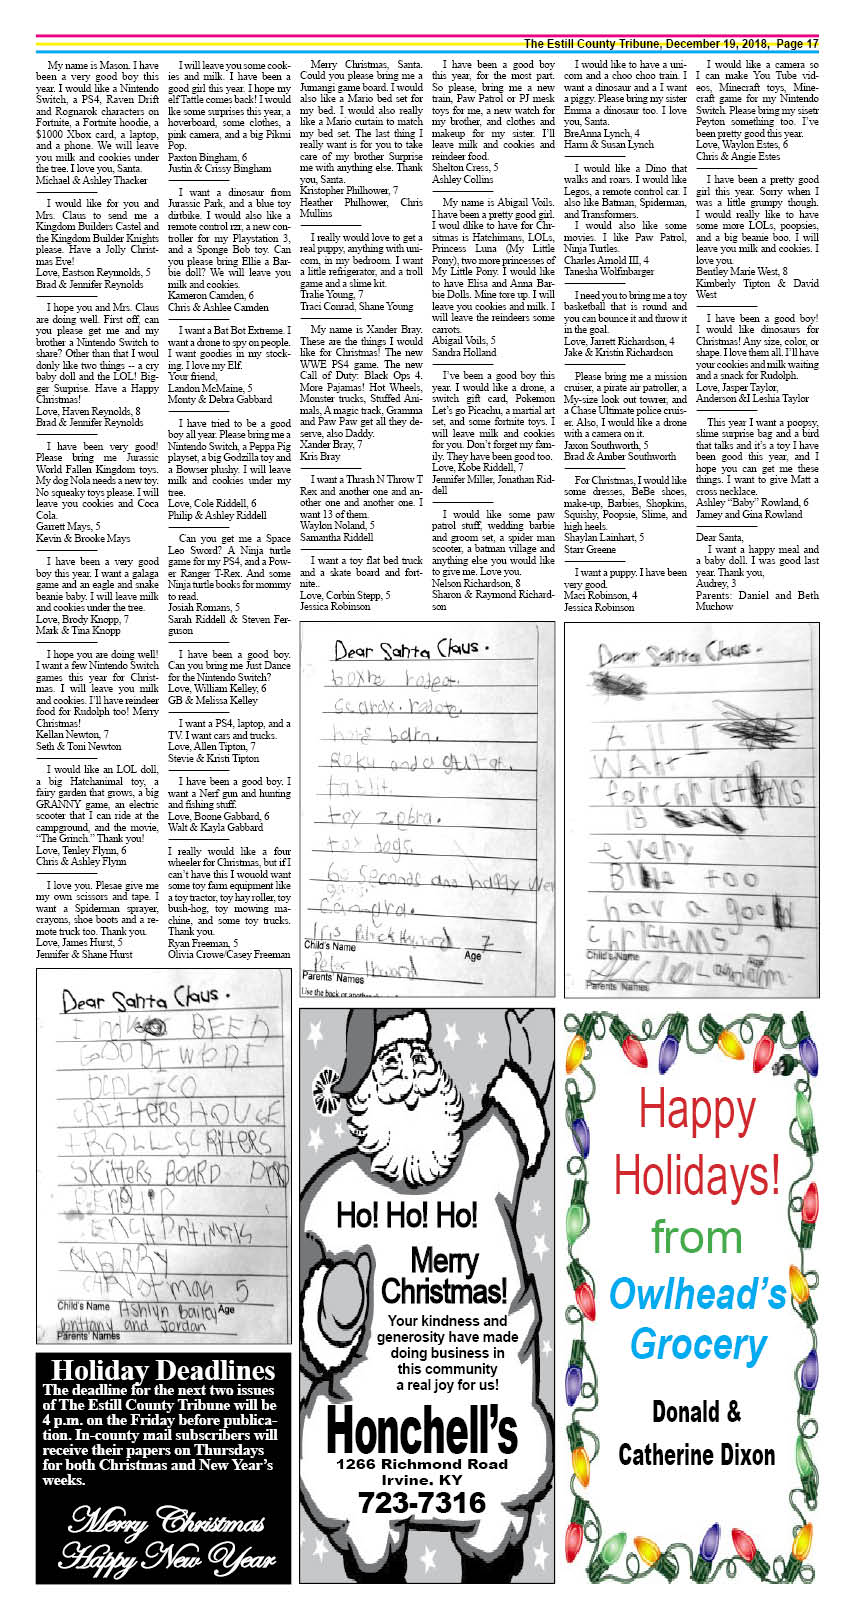 The Estill County Tribune, December 19, 2018, Page 17
My name is Mason. I have
been a very good boy this
year. I would like a Nintendo
Switch, a PS4, Raven Drift
and Rognarok characters on
Fortnite, a Fortnite hoodie, a
$1000 Xbox card, a laptop,
and a phone. We will leave
you milk and cookies under
the tree. I love you, Santa.
Michael & Ashley Thacker
I would love for you and
Mrs. Claus to send me a
Kingdom Builders Castel and
the Kingdom Builder Knights
please. Have a Jolly Christ-
mas Eve!
Love, Eastson Reynnolds, 5
Brad & Jennifer Reynolds
I hope you and Mrs. Claus
are doing well. First off, can
you please get me and my
brother a Nintendo Switch to
share? Other than that I woul
donly like two things -- a cry
baby doll and the LOL! Big-
ger Surprise. Have a Happy
Christmas!
Love, Haven Reynolds, 8
Brad & Jennifer Reynolds
I have been very good!
Please bring me Jurassic
World Fallen Kingdom toys.
My dog Nola needs a new toy.
No squeaky toys please. I will
leave you cookies and Coca
Cola.
Garrett Mays, 5
Kevin & Brooke Mays
I have been a very good
boy this year. I want a galaga
game and an eagle and snake
beanie baby. I will leave milk
and cookies under the tree.
Love, Brody Knopp, 7
Mark & Tina Knopp
I hope you are doing well!
I want a few Nintendo Switch
games this year for Christ-
mas. I will leave you milk
and cookies. I'll have reindeer
food for Rudolph too! Merry
Christmas!
Kellan Newton, 7
Seth & Toni Newton
I would like an LOL doll,
a big Hatchanimal toy, a
fairy garden that grows, a big
GRANNY game, an electric
scooter that I can ride at the
campground, and the movie,
"The Grinch." Thank you!
Love, Tenley Flynn, 6
Chris & Ashley Flynn
I love you. Plesae give me
my own scissors and tape. I
want a Spiderman sprayer,
crayons, shoe boots and a re-
mote truck too. Thank you.
Love, James Hurst, 5
Jennifer & Shane Hurst
I will leave you some cook-
ies and milk. I have been a
good girl this year. I hope my
elf Tattle comes back! I would
lke some surprises this year, a
hoverboard, some clothes, a
pink camera, and a big Pikmi
Pop.
Paxton Bingham, 6
Justin & Crissy Bingham
I want a dinosaur from
Jurassic Park, and a blue toy
dirtbike. I would also like a
remote control rzr, a new con-
troller for my Playstation 3,
and a Sponge Bob toy. Can
you please bring Ellie a Bar-
bie doll? We will leave you
milk and cookies.
Kameron Camden, 6
Chris & Ashlee Camden
I want a Bat Bot Extreme. I
want a drone to spy on people.
I want goodies in my stock-
ing. I love my Elf.
Your friend,
Landon McMaine, 5
Monty & Debra Gabbard
I have tried to be a good
boy all year. Please bring me a
Nintendo Switch, a Peppa Pig
playset, a big Godzilla toy and
a Bowser plushy. I will leave
milk and cookies under my
tree.
Love, Cole Riddell, 6
Philip & Ashley Riddell
Can you get me a Space
Leo Sword? A Ninja turtle
game for my PS4, and a Pow-
er Ranger T-Rex. And some
Ninja turtle books for mommy
to read.
Josiah Romans, 5
Sarah Riddell & Steven Fer-
guson
I have been a good boy.
Can you bring me Just Dance
for the Nintendo Switch?
Love, William Kelley, 6
GB & Melissa Kelley
I want a PS4, laptop, and a
TV. I want cars and trucks.
Love, Allen Tipton, 7
Stevie & Kristi Tipton
I have been a good boy. I
want a Nerf gun and hunting
and fishing stuff.
Love, Boone Gabbard, 6
Walt & Kayla Gabbard
I really would like a four
wheeler for Christmas, but if I
can't have this I wouold want
some toy farm equipment like
a toy tractor, toy hay roller, toy
bush-hog, toy mowing ma-
chine, and some toy trucks.
Thank you.
Ryan Freeman, 5
Olivia Crowe/Casey Freeman
Merry Christmas, Santa.
Could you please bring me a
Jumangi game board. I would
also like a Mario bed set for
my bed. I would also really
like a Mario curtain to match
my bed set. The last thing I
really want is for you to take
care of my brother Surprise
me with anything else. Thank
you, Santa.
Kristopher Philhower, 7
Heather Philhower, Chris
Mullins
I really would love to get a
real puppy, anything with uni-
corn, in my bedroom. I want
a little refrigerator, and a troll
game and a slime kit.
Tralie Young, 7
Traci Conrad, Shane Young
My name is Xander Bray.
These are the things I would
like for Christmas! The new
WWE PS4 game. The new
Call of Duty: Black Ops 4.
More Pajamas! Hot Wheels,
Monster trucks, Stuffed Ani-
mals, A magic track, Gramma
and Paw Paw get all they de-
serve, also Daddy.
Xander Bray, 7
Kris Bray
I want a Thrash N Throw T
Rex and another one and an-
other one and another one. I
want 13 of them.
Waylon Noland, 5
Samantha Riddell
I want a toy flat bed truck
and a skate board and fort-
nite..
Love, Corbin Stepp, 5
Jessica Robinson
I have been a good boy
this year, for the most part.
So please, bring me a new
train, Paw Patrol or PJ mesk
toys for me, a new watch for
my brother, and clothes and
makeup for my sister. I'll
leave milk and cookies and
reindeer food.
Shelton Cress, 5
Ashley Collins
My name is Abigail Voils.
I have been a pretty good girl.
I woul dlike to have for Chr-
sitmas is Hatchimans, LOLs,
Princess Luna (My Little
Pony), two more princesses of
My Little Pony. I would like
to have Elisa and Anna Bar-
bie Dolls. Mine tore up. I will
leave you cookies and milk. I
will leave the reindeers some
carrots.
Abigail Voils, 5
Sandra Holland
I've been a good boy this
year. I would like a drone, a
switch gift card, Pokemon
Let's go Picachu, a martial art
set, and some fortnite toys. I
will leave milk and cookies
for you. Don't forget my fam-
ily. They have been good too.
Love, Kobe Riddell, 7
Jennifer Miller, Jonathan Rid-
dell
I would like some paw
patrol stuff, wedding barbie
and groom set, a spider man
scooter, a batman village and
anything else you would like
to give me. Love you.
Nelson Richardson, 8
Sharon & Raymond Richard-
son
I would like to have a uni-
corn and a choo choo train. I
want a dinosaur and a I want
a piggy. Please bring my sister
Emma a dinosaur too. I love
you, Santa.
BreAnna Lynch, 4
Harm & Susan Lynch
I would like a Dino that
walks and roars. I would like
Legos, a remote control car. I
also like Batman, Spiderman,
and Transformers.
I would also like some
movies. I like Paw Patrol,
Ninja Turtles.
Charles Arnold III, 4
Tanesha Wolfinbarger
I need you to bring me a toy
basketball that is round and
you can bounce it and throw it
in the goal.
Love, Jarrett Richardson, 4
Jake & Kristin Richardson
Please bring me a mission
cruiser, a pirate air patroller, a
My-size look out towrer, and
a Chase Ultimate police cruis-
er. Also, I would like a drone
with a camera on it.
Jaxon Southworth, 5
Brad & Amber Southworth
For Christmas, I would like
some dresses, BeBe shoes,
make-up, Barbies, Shopkins,
Squishy, Poopsie, Slime, and
high heels.
Shaylan Lainhart, 5
Starr Greene
I want a puppy. I have been
very good.
Maci Robinson, 4
Jessica Robinson
I would like a camera so
I can make You Tube vid-
eos, Minecraft toys, Mine-
craft game for my Nintendo
Switch. Please bring my sisetr
Peyton something too. I've
been pretty good this year.
Love, Waylon Estes, 6
Chris & Angie Estes
I have been a pretty good
girl this year. Sorry when I
was a little grumpy though.
I would really like to have
some more LOLs, poopsies,
and a big beanie boo. I will
leave you milk and cookies. I
love you.
Bentley Marie West, 8
Kimberly Tipton & David
West
I have been a good boy!
I would like dinosaurs for
Christmas! Any size, color, or
shape. I love them all. I'll have
your cookies and milk waiting
and a snack for Rudolph.
Love, Jasper Taylor,
Anderson &I Leshia Taylor
This year I want a poopsy,
slime surprise bag and a bird
that talks and it's a toy I have
been good this year, and I
hope you can get me these
things. I want to give Matt a
cross necklace.
Ashley "Baby" Rowland, 6
Jamey and Gina Rowland
Dear Santa,
I want a happy meal and
a baby doll. I was good last
year. Thank you,
Audrey, 3
Parents: Daniel and Beth
Muchow
Dear Santa Claus.
barn.
Roku and a
toy zebra.
toy dogs.
60 seconds and happy
Iris Patrick Howard 7
Child's Name Age
Peter Howard
Parents' Names
Use the back or another
Dear Santa Claus.
All I
Want
for christmas
is
every
Bille too
hav a good
christams
Child's Name Age
Parents Names
Dear Santa Claus.
BEEN
GOOD I WONT
CRITTERS HOUSE
TROLLS CRITERS
SKITTERS BOARD
PENGUIN
MARRY
5
Child's Name Ashlyn Bailey Age
Brittany and Jordan
Parents' Names
Holiday Deadlines
The deadline for the next two issues
of The Estill County Tribune will be
4 p.m. on the Friday before publica-
tion. In-county mail subscribers will
receive their papers on Thursdays
for both Christmas and New Year's
weeks.
Merry Christmas
Happy New Year
Ho! Ho! Ho!
Merry
Christmas!
Your kindness and
generosity have made
doing business in
this community
a real joy for us!
Honchell's
1266 Richmond Road
Irvine, KY
723-7316
Happy
Holidays!
from
Owlhead's
Grocery
Donald &
Catherine Dixon